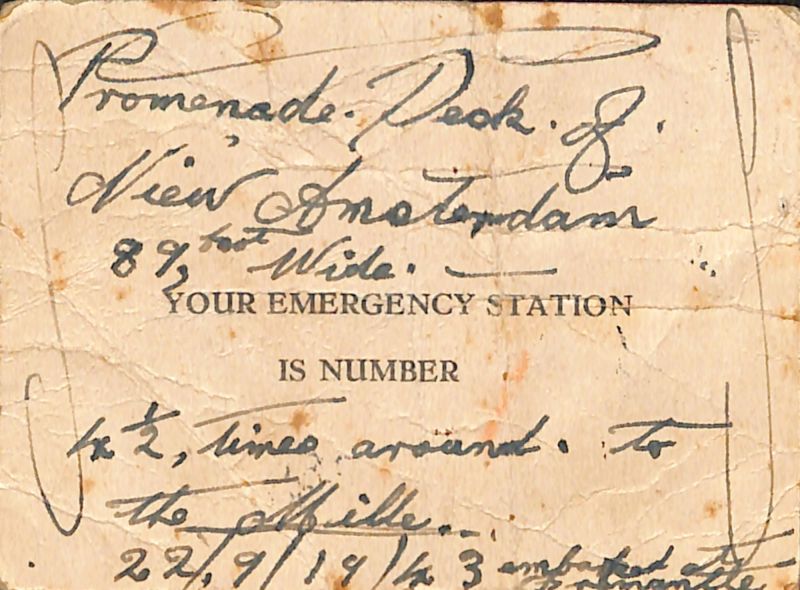 Promenade. Deck. of.
Niew Amsterdam
89, foot Wide. —
YOUR EMERGENCY STATION
IS NUMBER
4 1/2, times around. to
the Mille..
22/9/1943 embarked at
Fremantle